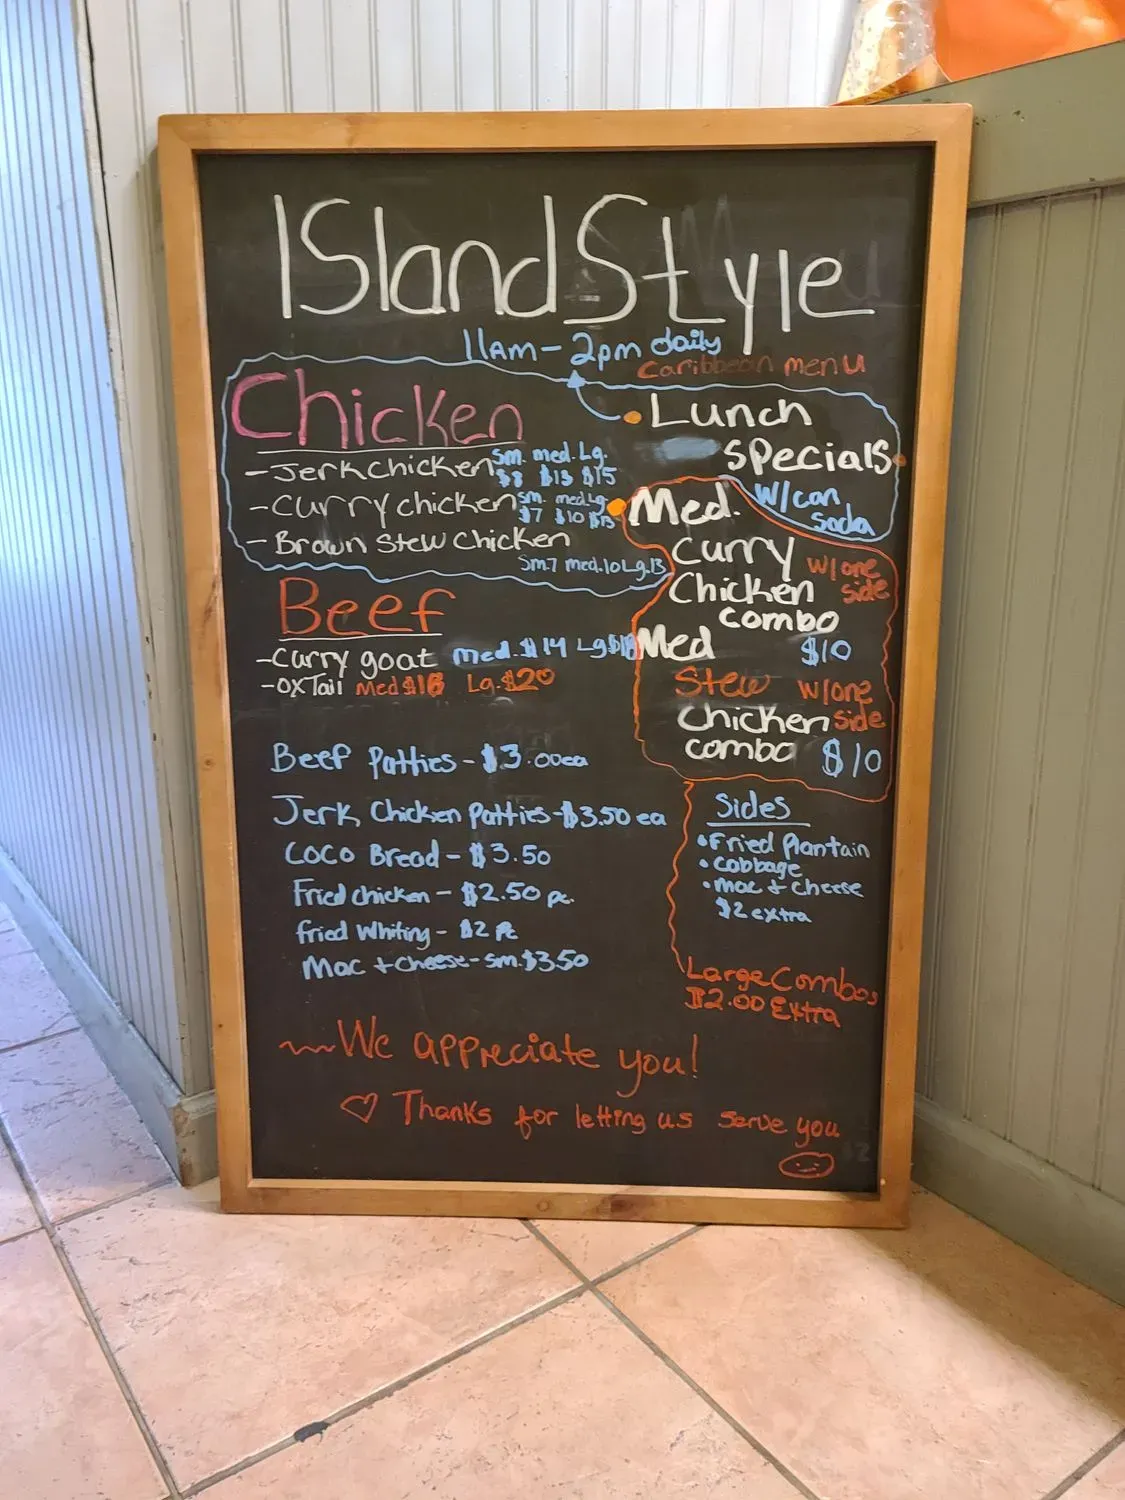 Island Style
11AM - 2pm daily
Caribbean menu
Chicken
- Jerk chicken Sm. med. Lg.
$8 $13 $15
- Curry chicken Sm. med Lg.
$7 $10 $13
- Brown Stew Chicken
Sm.7 med.10 Lg.13
Beef
- Curry goat Med. $14 Lg $18
- OxTail Med $16 Lg. $20
Beef Patties - $3.00 ea
Jerk Chicken Patties - $3.50 ea
COCO Bread - $3.50
Fried chicken - $2.50 pc.
fried Whiting - $2 pc
Mac + Cheese - sm. $3.50
Lunch
Specials
W/can
Soda
Med.
Curry W/one
Chicken side
combo
$10
Med
Stew W/one
Chicken side
combo $10
Sides
• Fried Plantain
• cabbage
• mac + cheese
$2 extra
Large Combos
$2.00 Extra
We appreciate you!
Thanks for letting us serve you